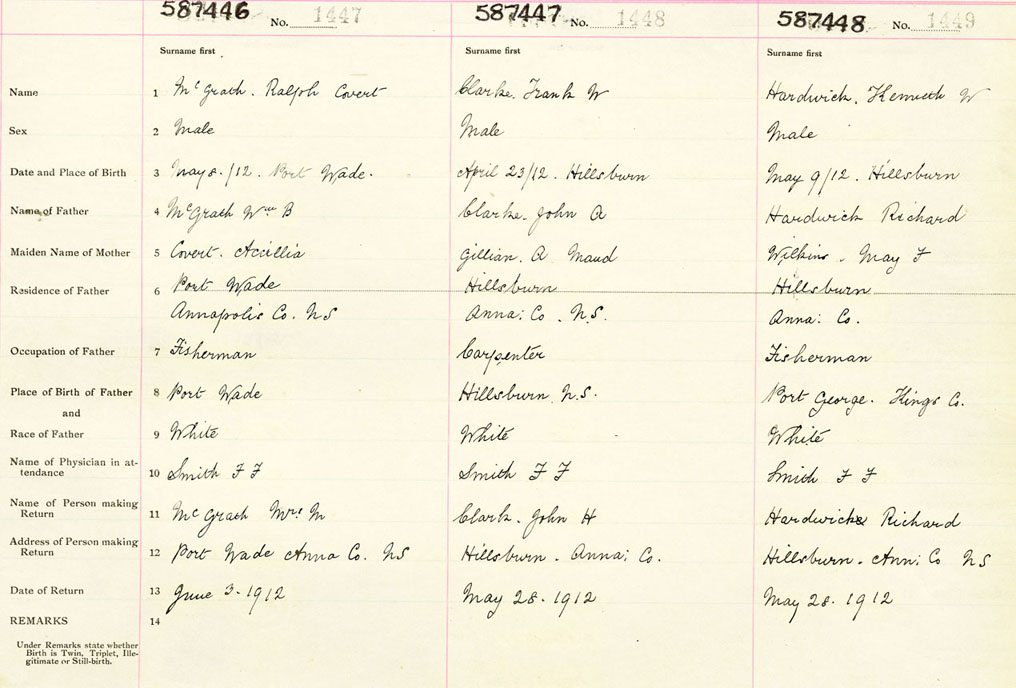 587446 No. 1447 587447 No. 1448 587448 No. 1449
Surname first Surname first Surname first
Name 1 McGrath. Ralph Covert Clarke. Frank W Hardwick. Kenneth W
Sex 2 Male Male Male
Date and Place of Birth 3 May 8./12. Port Wade. April 23/12. Hillsburn May 9/12. Hillsburn
Name of Father 4 McGrath Wm B Clarke. John A Hardwick Richard
Maiden Name of Mother 5 Covert. Accillia Gillian. A Maud Wilkins. May F
Residence of Father 6 Port Wade Hillsburn Hillsburn
Annapolis Co. NS Anna: Co. N.S. Anna: Co.
Occupation of Father 7 Fisherman Carpenter Fisherman
Place of Birth of Father 8 Port Wade Hillsburn N.S. Port George. Kings Co.
and
Race of Father 9 White White White
Name of Physician in at-
tendance 10 Smith F F Smith F F Smith F F
Name of Person making
Return 11 McGrath Mrs M Clark. John H Hardwick Richard
Address of Person making
Return 12 Port Wade Anna Co. NS Hillsburn. Anna: Co. Hillsburn. Ann: Co NS
Date of Return 13 June 3. 1912 May 28. 1912 May 28. 1912
REMARKS 14
Under Remarks state whether
Birth is Twin, Triplet, Ille-
gitimate or Still-birth.